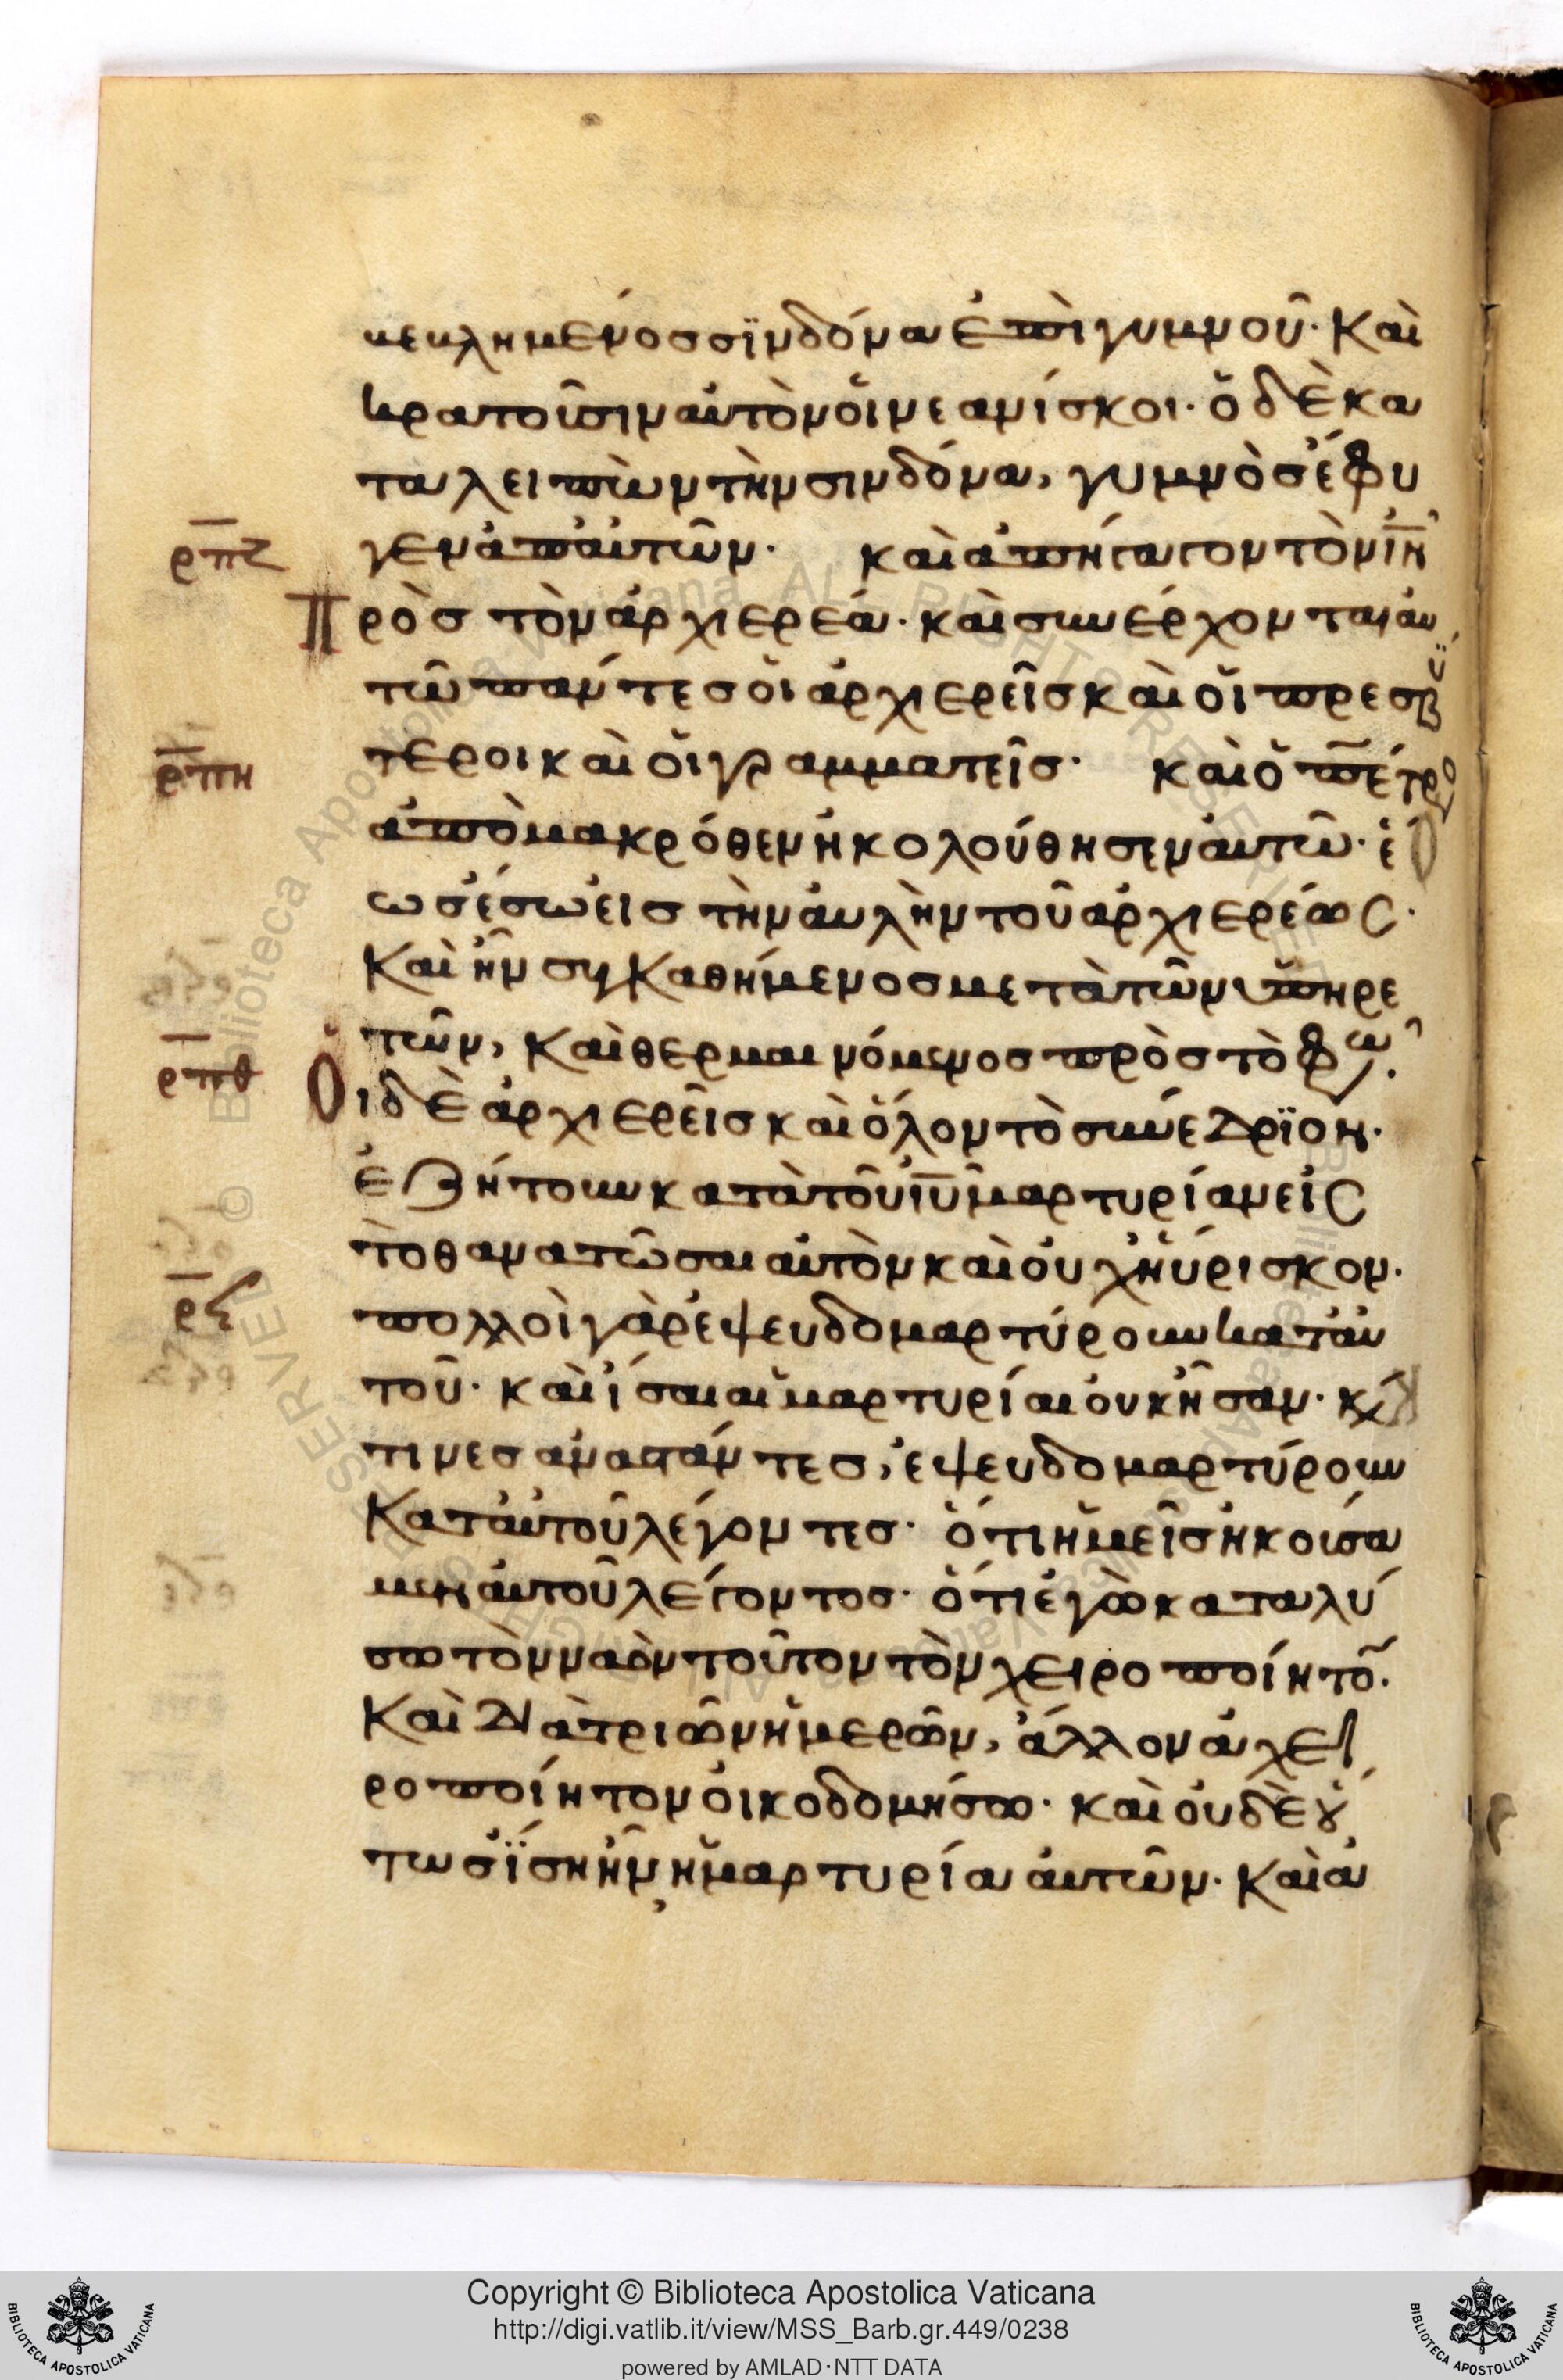 βεβλημένος σϊνδόνα ἐπὶ γυμνοῦ· Καὶ
κρατοῦσιν αὐτὸν ὁι νεανίσκοι· ὁ δὲ κα
ταλειπὼν τὴν σινδόνα, γυμνὸς ἔφυ
ρπζ γεν ἀπ' αὐτῶν· καὶ ἀπήγαγον τὸν ιν
Πρὸς τὸν ἀρχιερέα· καὶ συνέρχονται αυ
τῶ πάντες ὁι ἀρχιερεῖς καὶ ὁι πρεσβύ
ρπη τεροι καὶ ὁι γραμματεῖς· καὶ ὁ πέτρο
ἀπὸ μακρόθεν ἠκολούθησεν αὐτῶ· ἑ
ως ἔσω εἰς τὴν ἀυλὴν τοῦ ἀρχιερέως·
Καὶ ἦν συγκαθήμενος μετὰ τῶν ὑπηρε
τῶν, καὶ θερμαινόμενος πρὸς τὸ φῶς·
ρπθ Οἱ δὲ ἀρχιερεῖς καὶ ὅλον τὸ συνέδριον·
ἐζήτουν κατὰ τοῦ ιυ μαρτυρίαν εἰς
τὸ θανατῶσαι αὐτὸν καὶ οὐχ ηὕρισκον·
ρϟ πολλοὶ γὰρ ἐψευδομαρτύρουν κατ' αυ
τοῦ· καὶ ἴσαι αἱ μαρτυρίαι οὐκ ἦσαν· κ
τινες ἀναστάντες, ἐψευδομαρτύρουν
Κατ' αὐτοῦ λέγοντες· ὅτι ἡμεῖς ἠκούσα
μεν αὐτοῦ λέγοντος· ὅτι ἐγὼ καταλύ
σω τὸν ναὸν τοῦτον τὸν χειροποίητο·
Καὶ διὰ τριῶν ἡμερῶν, ἄλλον ἀχει
ροποίητον ὀικοδομήσω· καὶ οὐδὲ οὕ
τως ἴση ἦν ἡ μαρτυρία αὐτῶν· Καὶ ἀ
Copyright © Biblioteca Apostolica Vaticana
http://digi.vatlib.it/view/MSS_Barb.gr.449/0238
powered by AMLAD·NTT DATA
BIBLIOTECA APOSTOLICA VATICANA
BIBLIOTECA APOSTOLICA VATICANA